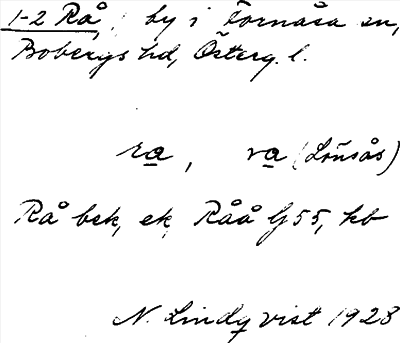 1-2 Rå, by i Fornåsa sn,
Bobergs hd, Österg. l.
ra, va (Lönsås)
Rå bek, ek, Råå G 55, kb
N. Lindqvist 1928